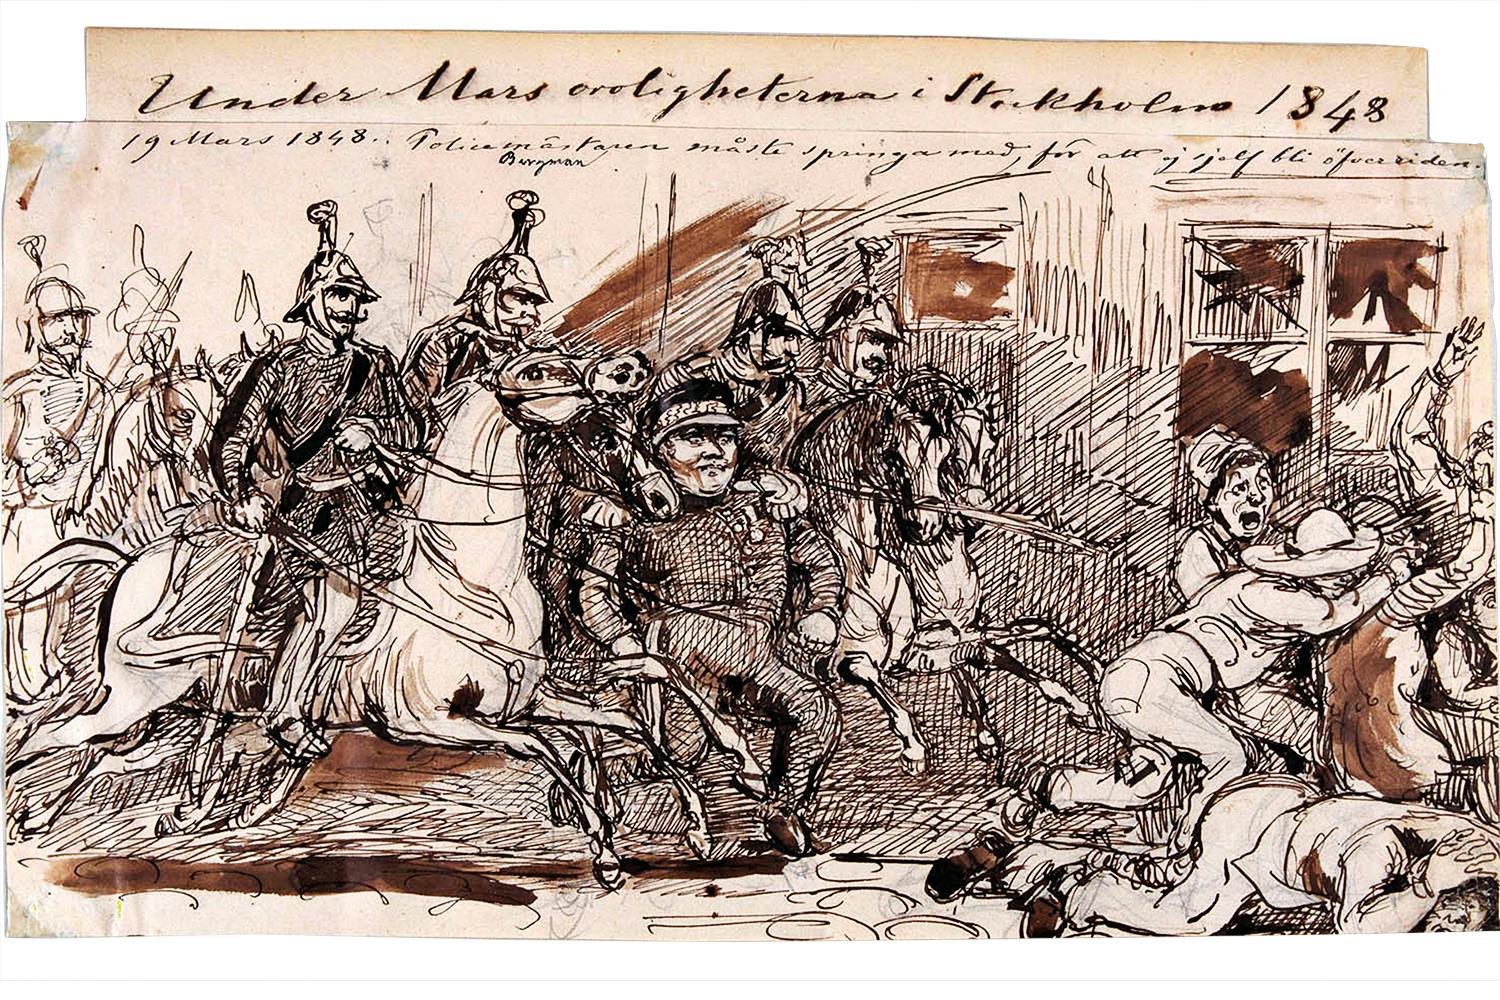 Under Mars oroligheterna i Stockholm 1848
19 Mars 1848. Policemästaren måste springa med, för att ej sjelf bli öfverriden.
Bergman